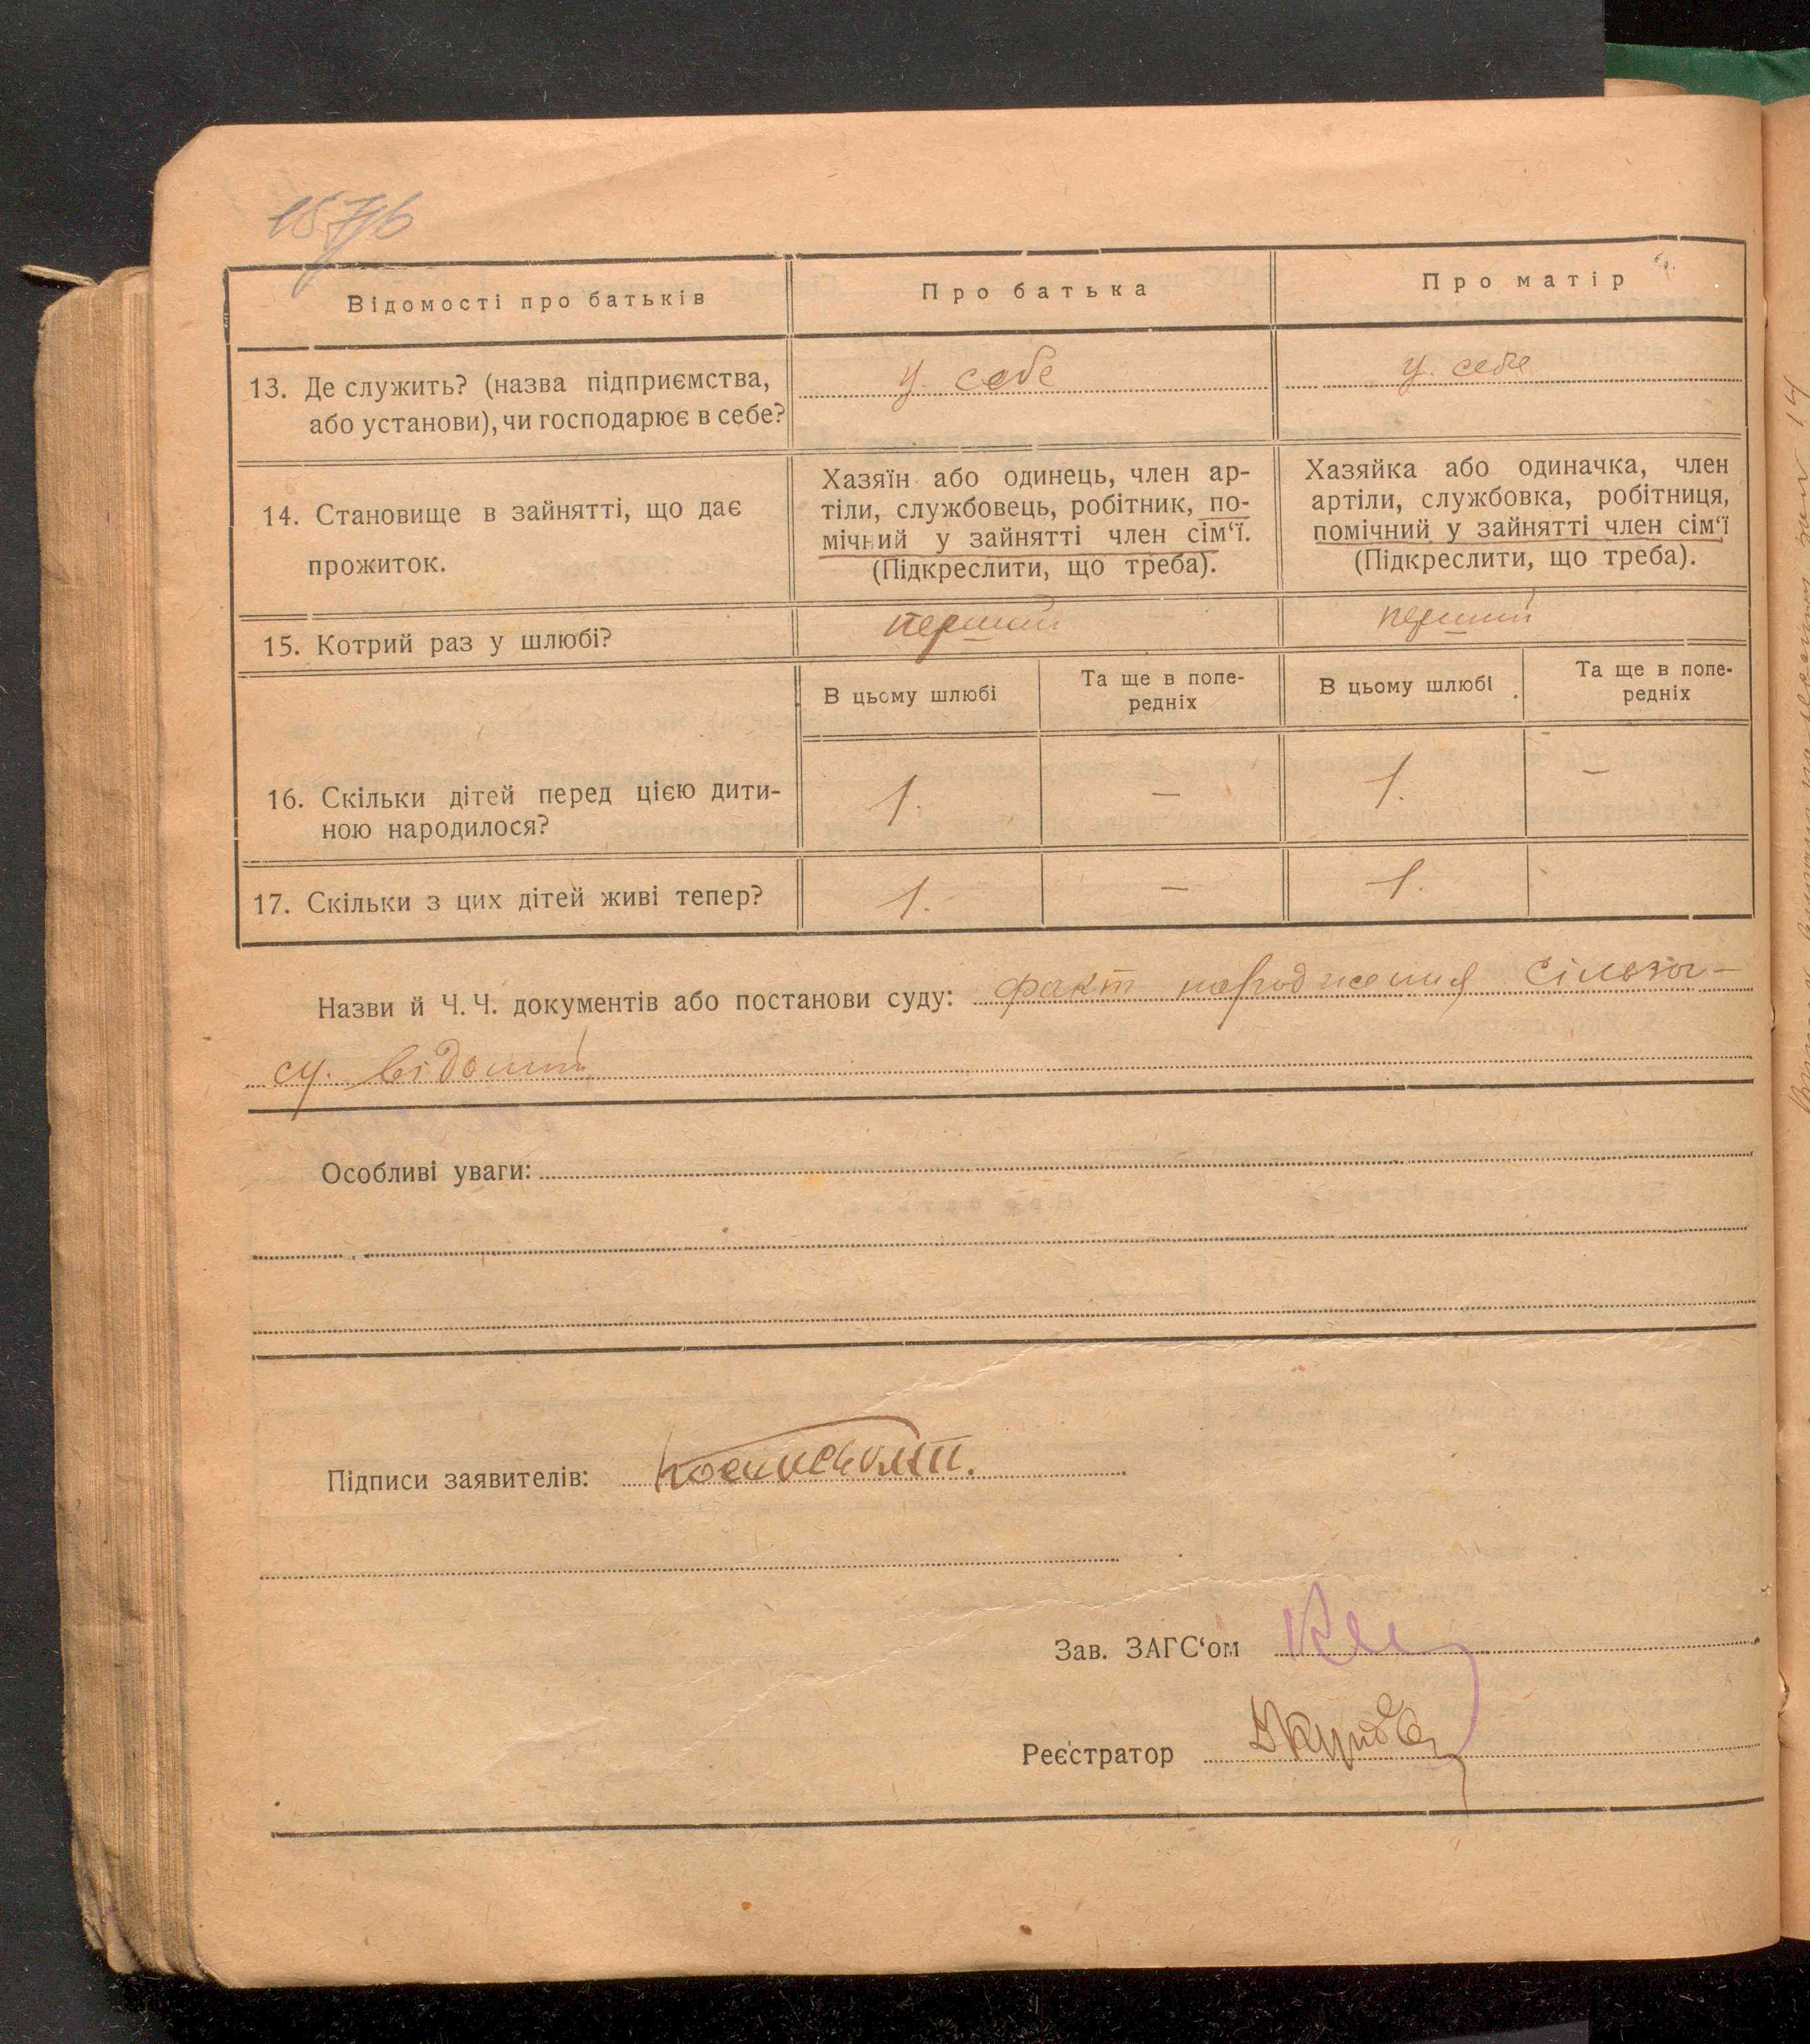 Відомості про батьків
Про батька
Про матір
13. Де служить? (назва підприємства,
або установи), чи господарює в себе?
у себе
у себе
14. Становище в зайнятті, що дає
прожиток.
Хазяїн або одинець, член ар-
тіли, службовець, робітник, по-
мічний у зайнятті член сім‘ї.
(Підкреслити, що треба).
Хазяйка або одиначка, член
артіли, службовка, робітниця,
помічний у зайнятті член сім‘ї
(Підкреслити, що треба).
15. Котрий раз у шлюбі?
перший
перший
В цьому шлюбі
Та ще в попе-
редніх
В цьому шлюбі
Та ще в попе-
редніх
16. Скільки дітей перед цією дити-
ною народилося?
1.
—
1.
—
17. Скільки з цих дітей живі тепер?
1.
—
1.
Назви й Ч. Ч. документів або постанови суду: факт народження
відомий
Особливі уваги:
Підписи заявителів:
Зав. ЗАГС‘ом
Реєстратор